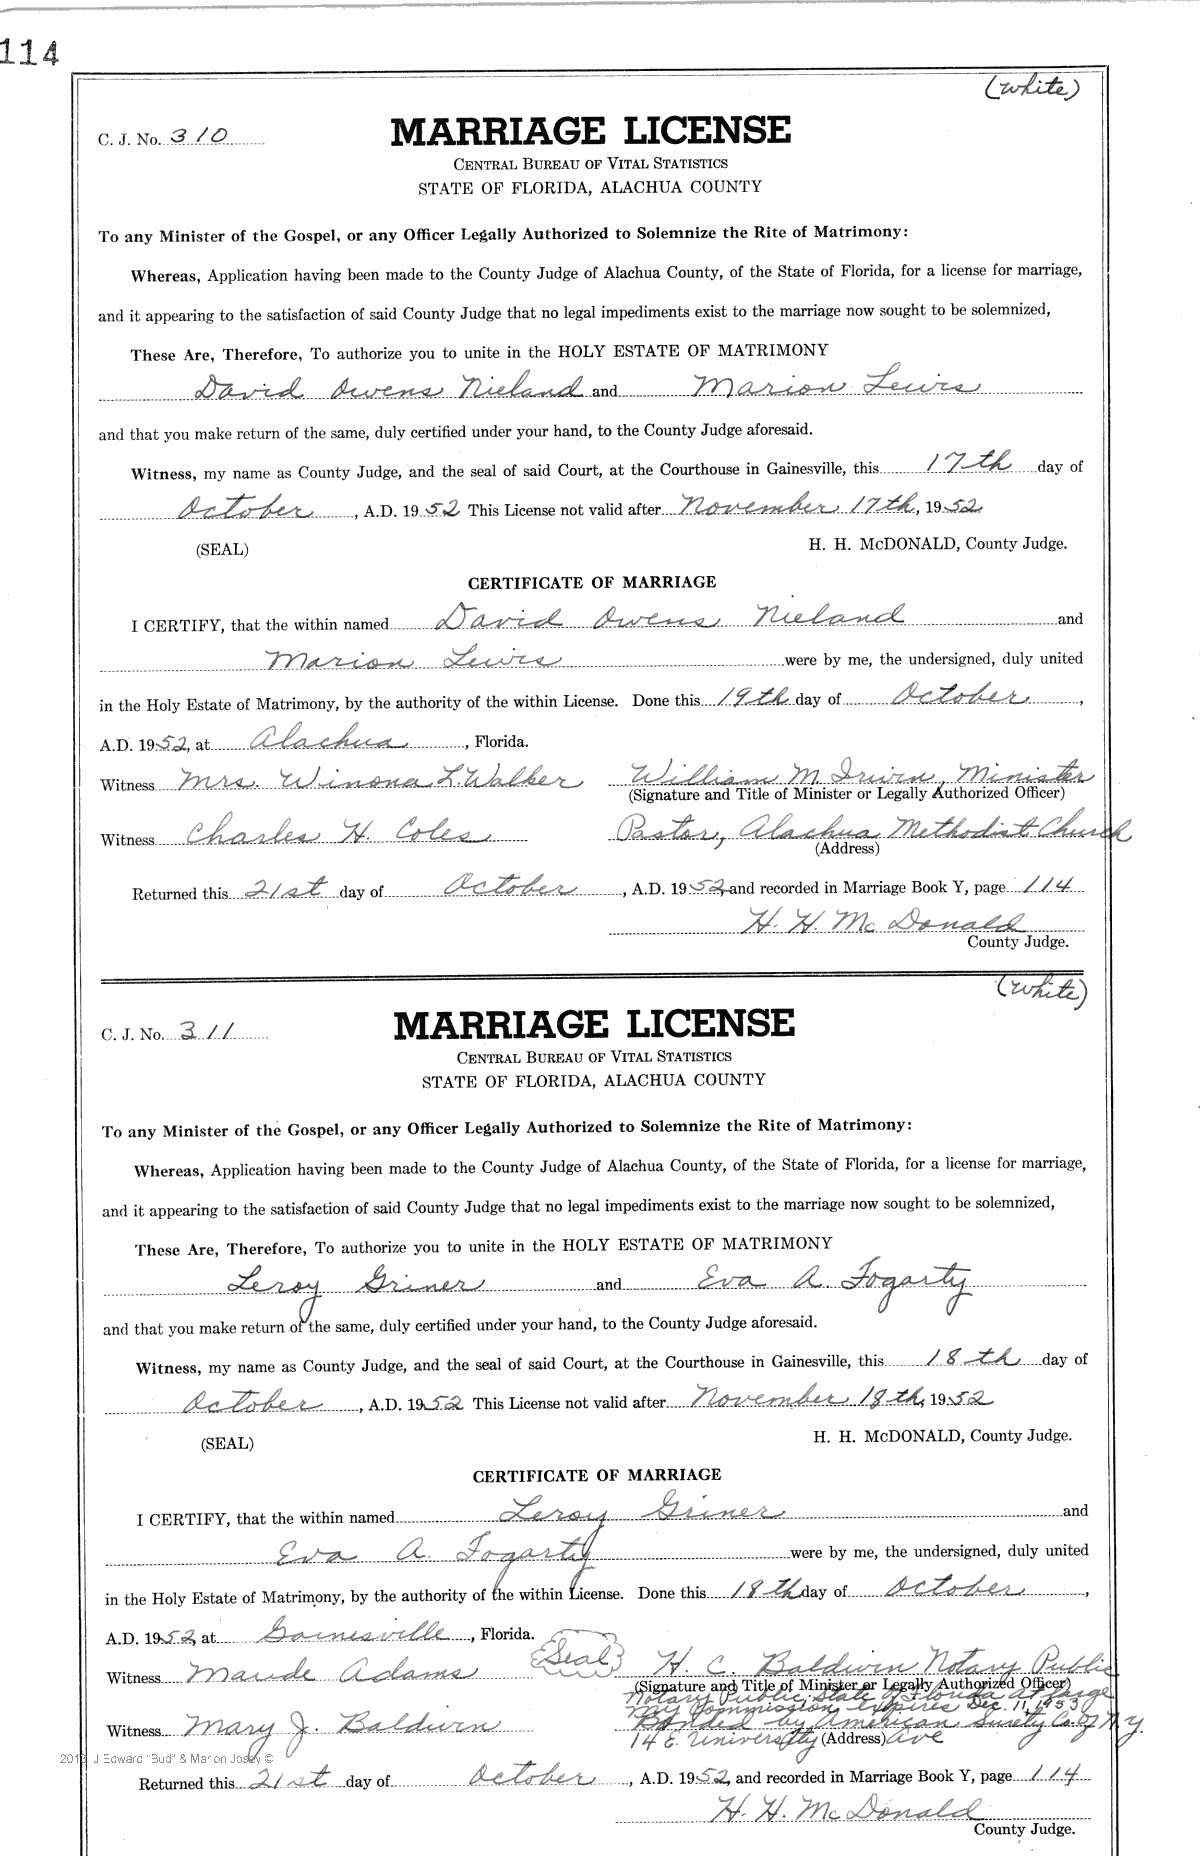 114
(White)
C. J. No. 310
MARRIAGE LICENSE
CENTRAL BUREAU OF VITAL STATISTICS
STATE OF FLORIDA, ALACHUA COUNTY
To any Minister of the Gospel, or any Officer Legally Authorized to Solemnize the Rite of Matrimony:
Whereas, Application having been made to the County Judge of Alachua County, of the State of Florida, for a license for marriage,
and it appearing to the satisfaction of said County Judge that no legal impediments exist to the marriage now sought to be solemnized,
These Are, Therefore, To authorize you to unite in the HOLY ESTATE OF MATRIMONY
David Owens Nieland and Marion Lewis
and that you make return of the same, duly certified under your hand, to the County Judge aforesaid.
Witness, my name as County Judge, and the seal of said Court, at the Courthouse in Gainesville, this 17th day of
October, A.D. 1952 This License not valid after November 17th, 1952
(SEAL) H. H. McDONALD, County Judge.
CERTIFICATE OF MARRIAGE
I CERTIFY, that the within named David Owens Nieland and
Marion Lewis were by me, the undersigned, duly united
in the Holy Estate of Matrimony, by the authority of the within License. Done this 19th day of October,
A.D. 1952, at Alachua, Florida.
Witness Mrs. Winona L. Walker William M. Irwin, Minister
(Signature and Title of Minister or Legally Authorized Officer)
Witness Charles H. Coles Pastor, Alachua Methodist Church
(Address)
Returned this 21st day of October, A.D. 1952, and recorded in Marriage Book Y, page 114
H. H. McDonald
County Judge.
(White)
C. J. No. 311
MARRIAGE LICENSE
CENTRAL BUREAU OF VITAL STATISTICS
STATE OF FLORIDA, ALACHUA COUNTY
To any Minister of the Gospel, or any Officer Legally Authorized to Solemnize the Rite of Matrimony:
Whereas, Application having been made to the County Judge of Alachua County, of the State of Florida, for a license for marriage,
and it appearing to the satisfaction of said County Judge that no legal impediments exist to the marriage now sought to be solemnized,
These Are, Therefore, To authorize you to unite in the HOLY ESTATE OF MATRIMONY
Leroy Griner and Eva A. Fogarty
and that you make return of the same, duly certified under your hand, to the County Judge aforesaid.
Witness, my name as County Judge, and the seal of said Court, at the Courthouse in Gainesville, this 18th day of
October, A.D. 1952 This License not valid after November 18th, 1952
(SEAL) H. H. McDONALD, County Judge.
CERTIFICATE OF MARRIAGE
I CERTIFY, that the within named Leroy Griner and
Eva A. Fogarty were by me, the undersigned, duly united
in the Holy Estate of Matrimony, by the authority of the within License. Done this 18th day of October,
A.D. 1952, at Gainesville, Florida.
Seal
Witness Maude Adams H. C. Baldwin Notary Public
(Signature and Title of Minister or Legally Authorized Officer)
Notary Public State of Florida at large
My Commission expires Dec. 11, 1953
Witness Mary J. Baldwin Bonded by American Surety Co. of N.Y.
14 E. University Ave
(Address)
2013 J Edward "Bud" & Marion Josey ©
Returned this 21st day of October, A.D. 1952, and recorded in Marriage Book Y, page 114
H. H. McDonald
County Judge.